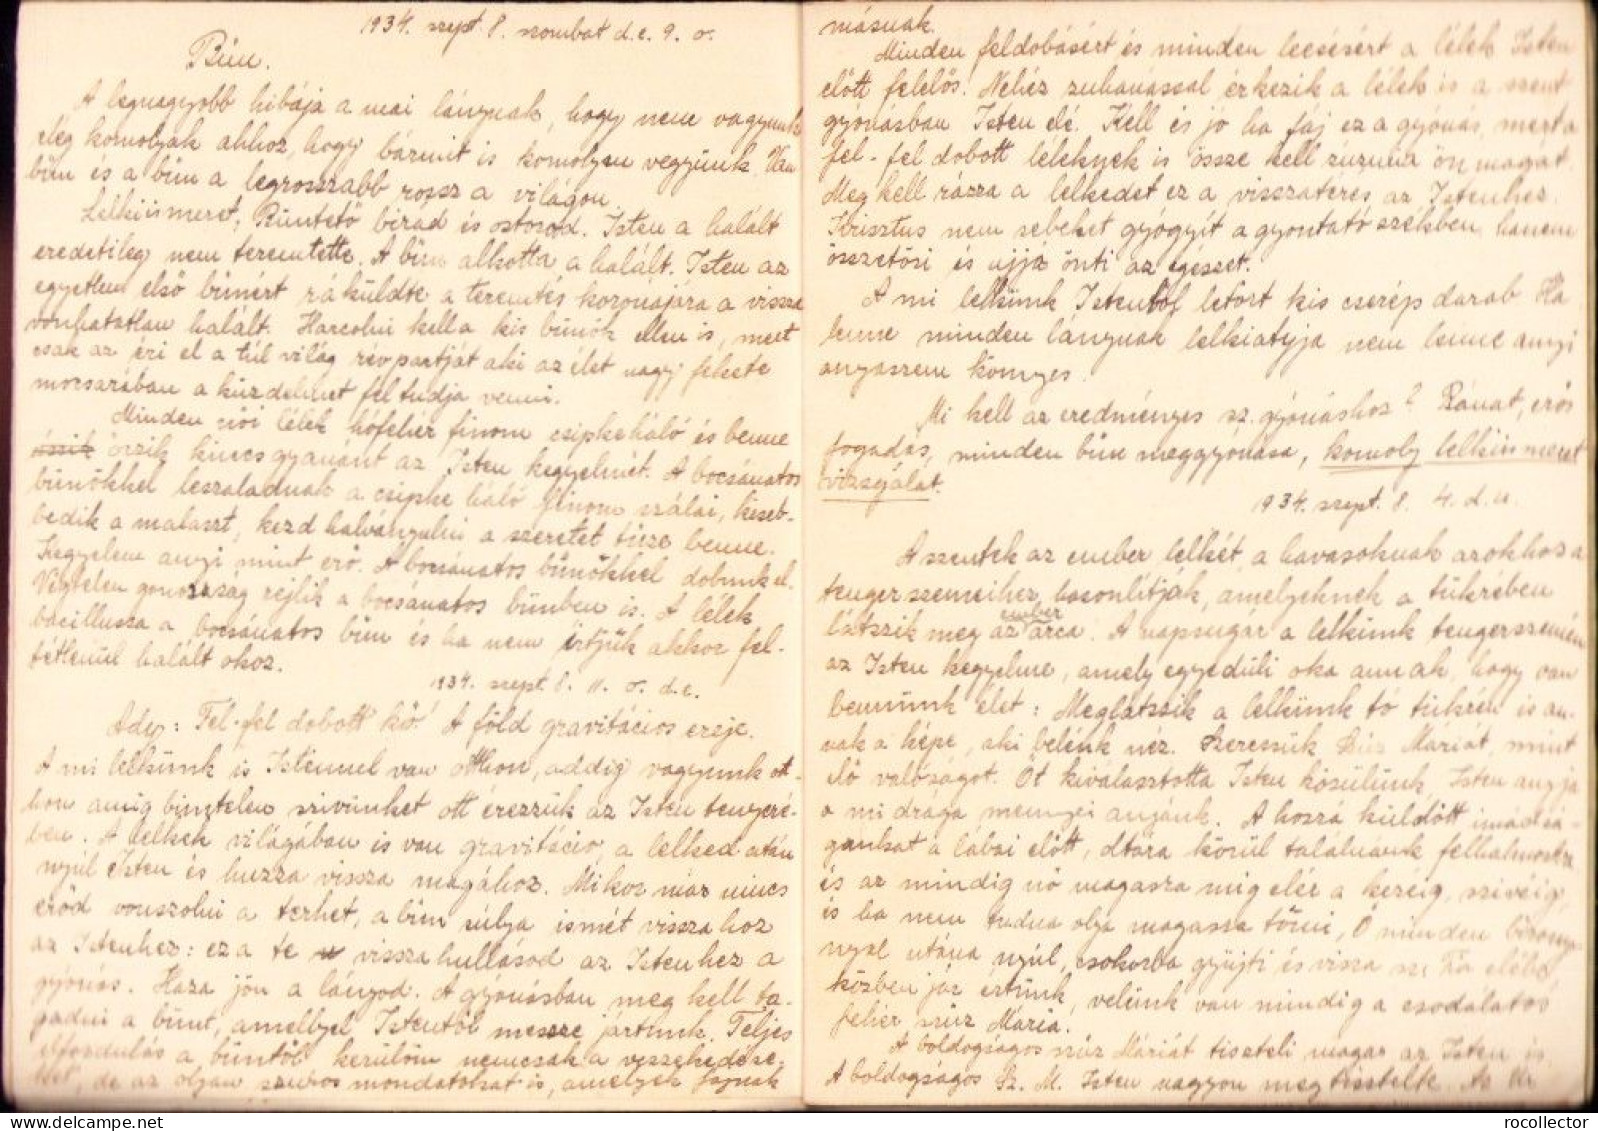 1934. szept. 8. szombat d.e. 9. o.
Bűn.
A legnagyobb hibája a mai lánynak, hogy nem vagyunk
elég komolyak ahhoz, hogy bármit is komolyan vegyünk. Van
bűn és a bűn a legrosszabb rossz a világon.
Lelkiismeret, Büntető bírád és ostorod. Isten a halált
eredetileg nem teremtette. A bűn alkotta a halált. Isten az
egyetlen első bűnért ráküldte a teremtés koronájára a vissza
vonhatatlan halált. Harcolni kell a kis bűnök ellen is, mert
csak az éri el a túl világ révpartját aki az élet nagy fekete
mocsarában a küzdelmet fel tudja venni.
Minden női lélek hófehér finom csipkeháló és benne
őrzik kincs gyanánt az Isten kegyelmét. A bocsánatos
bűnökkel leszaladnak a csipke háló finom szálai, kiseb-
bedik a malaszt, kezd halványulni a szeretet tüze benne.
Kegyelem annyi mint erő. A bocsánatos bűnökkel dobunk el.
Végtelen gonoszság rejlik a bocsánatos bűnben is. A lélek
bacillusa a bocsánatos bűn és ha nem írtjuk akkor fel-
tétlenül halált okoz.
1934. szept. 8. 11. o. d.e.
Ady: Fel-fel dobott kő! A föld gravitációs ereje.
A mi lelkünk is Istennel van otthon, addig vagyunk ot-
hon amíg bűntelen szivünket ott érezzük az Isten tenyeré-
ben. A lelkek világában is van gravitáció, a lelked után
nyúl Isten és huzza vissza magához. Mikor már nincs
erőd vonszolni a terhet, a bűn súlya ismét vissza hoz
az Istenhez: ez a te vissza hullásod az Istenhez a
gyónás. Haza jön a lányod. A gyónásban meg kell ta-
gadni a bűnt, amellyel Istentől messze jártunk. Teljes
elfordulás a bűntől kerülöm nemcsak a
de az olyan mondatokat is, amelyek fájnak
másnak.
Minden feldobásért és minden leesésért a lélek Isten
előtt felelős! Nehéz zuhanással érkezik a lélek is a szent
gyónásban Isten elé. Kell és jó ha fáj ez a gyónás, mert a
fel-fel dobott léleknek is össze kell zúznia önmagát.
Meg kell rázza a lelkedet ez a visszatérés az Istenhez.
Krisztus nem sebeket gyógyít a gyóntató székben, hanem
összetöri és ujjá önti az egészet.
A mi lelkünk Istentől letört kis cserép darab. Ha
lenne minden lánynak lelkiatyja nem lenne annyi
anyaszem könnyes.
Mi kell az eredményes sz. gyónáshoz? Bánat, erős
fogadás, minden bűn meggyónása, komoly lelkiismeret
vizsgálat.
1934. szept. 8. 4. d.u.
A szentek az ember lelkét, a havasoknak azokhoz a
tenger szemeihez hasonlítják, amelyeknek a tükrében
látszik meg az ember arca. A napsugár a lelkünk tengerszemén
az Isten kegyelme, amely egyedüli oka annak, hogy van
bennünk élet: Meglátszik a lelkünk tó tükrén is an-
nak a képe, aki belénk néz. Szeressük Szűz Máriát, mint
élő valóságot. Őt kiválasztotta Isten közülünk, Isten anyja
a mi drága mennyei anyánk. A hozzá küldött imádsá-
gunkat a lábai előtt, oltára körül találnánk felhalmozva
és az mindig nő magasra míg elér a kezéig, szivéig,
és ha nem tudna olyan magasra törni, Ő minden
utána nyúl, csokorba gyüjti és viszi sz. Fia elébe,
közben jár értünk, velünk van mindig a csodálatos,
fehér szűz Mária.
A boldogságos szűz Máriát tiszteli maga az Isten is.
A boldogságos Sz. M. Isten nagyon megtisztelte. Az
rocollector